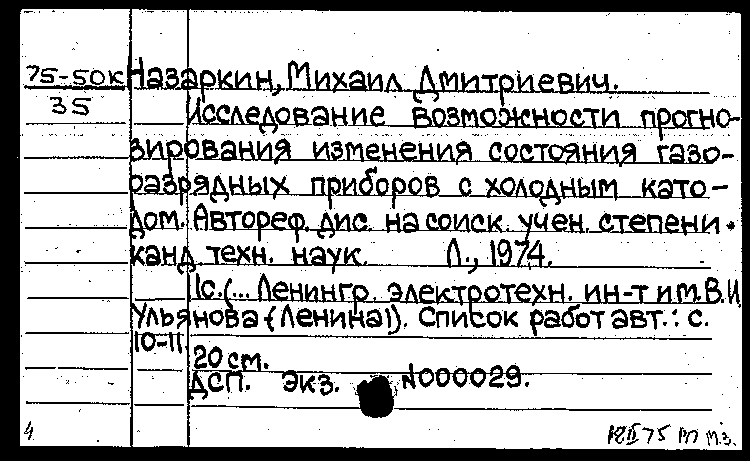 75-50к Назаркин, Михаил Дмитриевич.
35 Исследование возможности прогно-
зирования изменения состояния газо-
разрядных приборов с холодным като-
дом. Автореф. дис. на соиск. учен. степени
канд. техн. наук. Л., 1974.
1с. (... Ленингр. электротехн. ин-т им. В.И
Ульянова (Ленина)). Список работ авт.: с.
10-11
20 см.
ДСП. Экз. №000029.
4